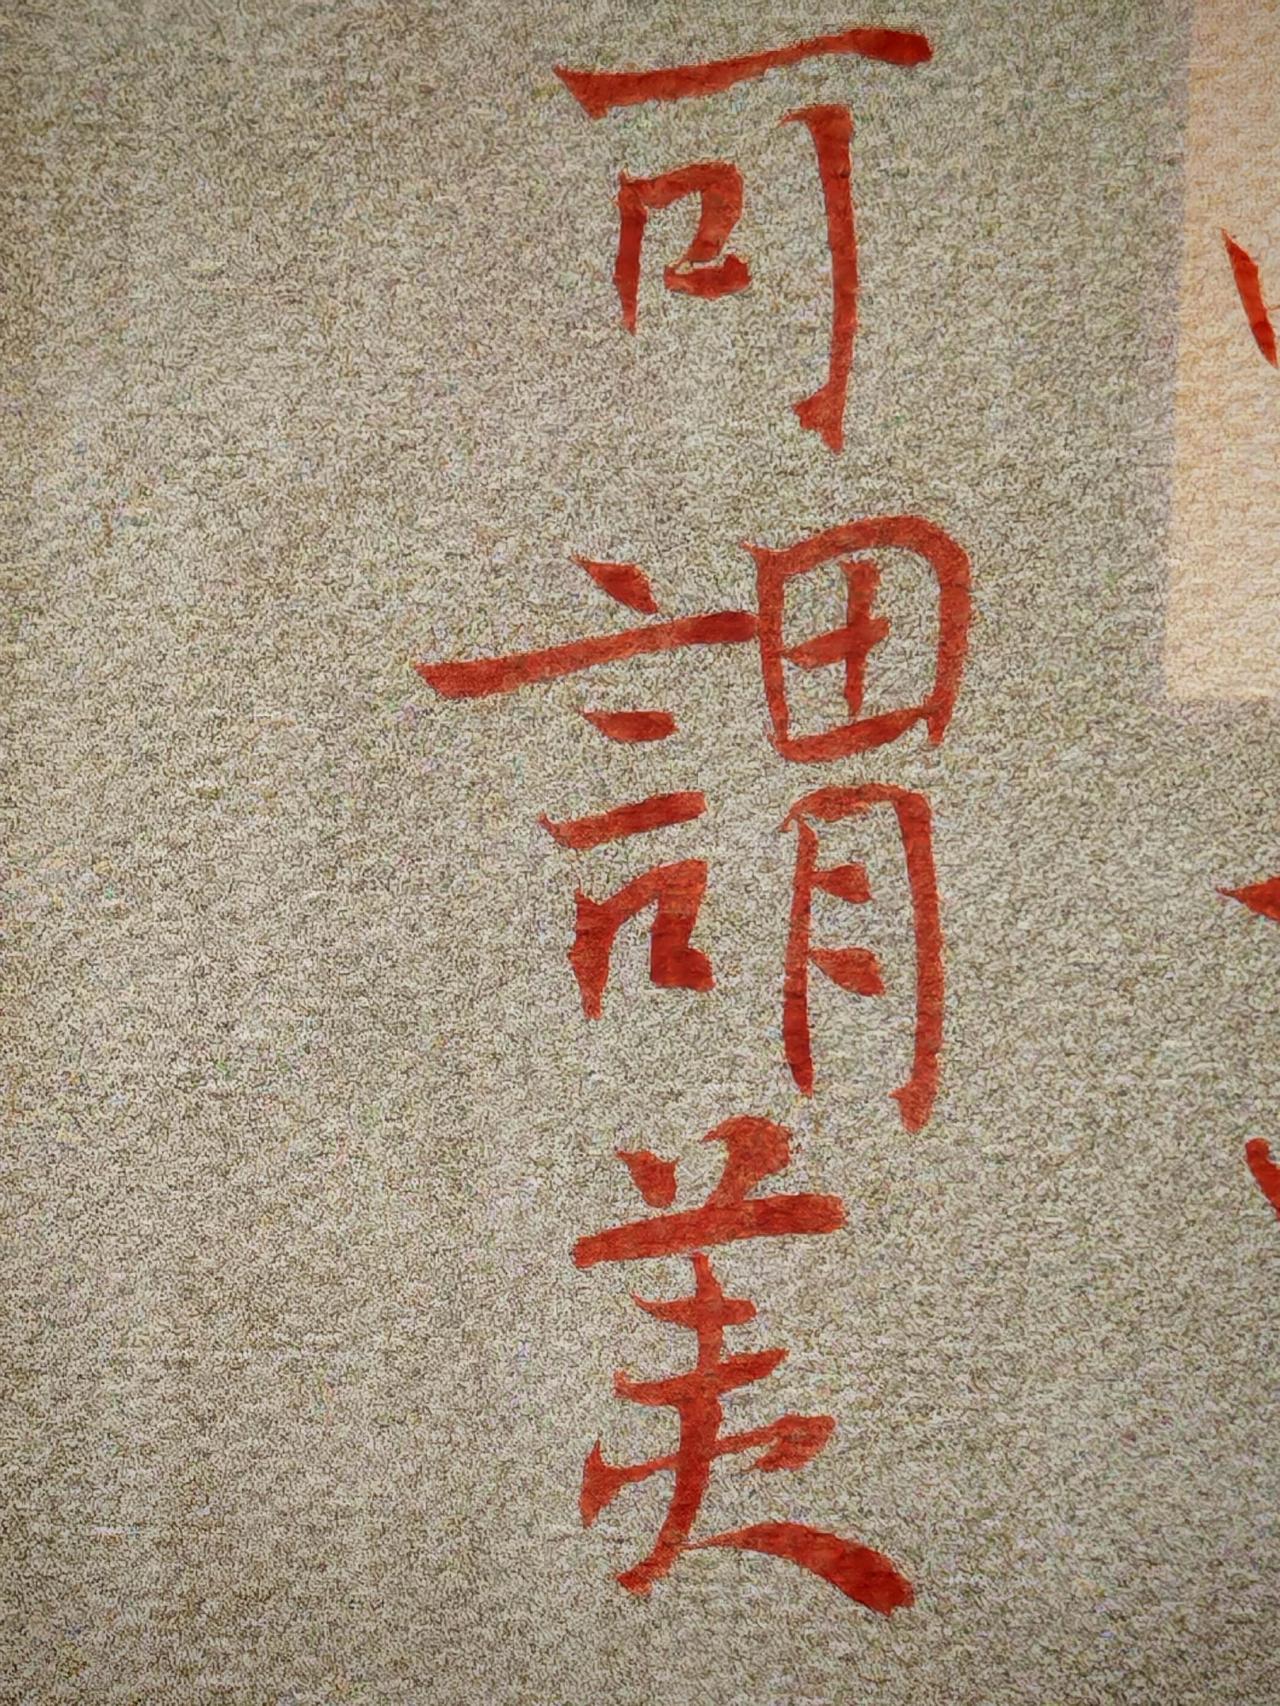 可謂美